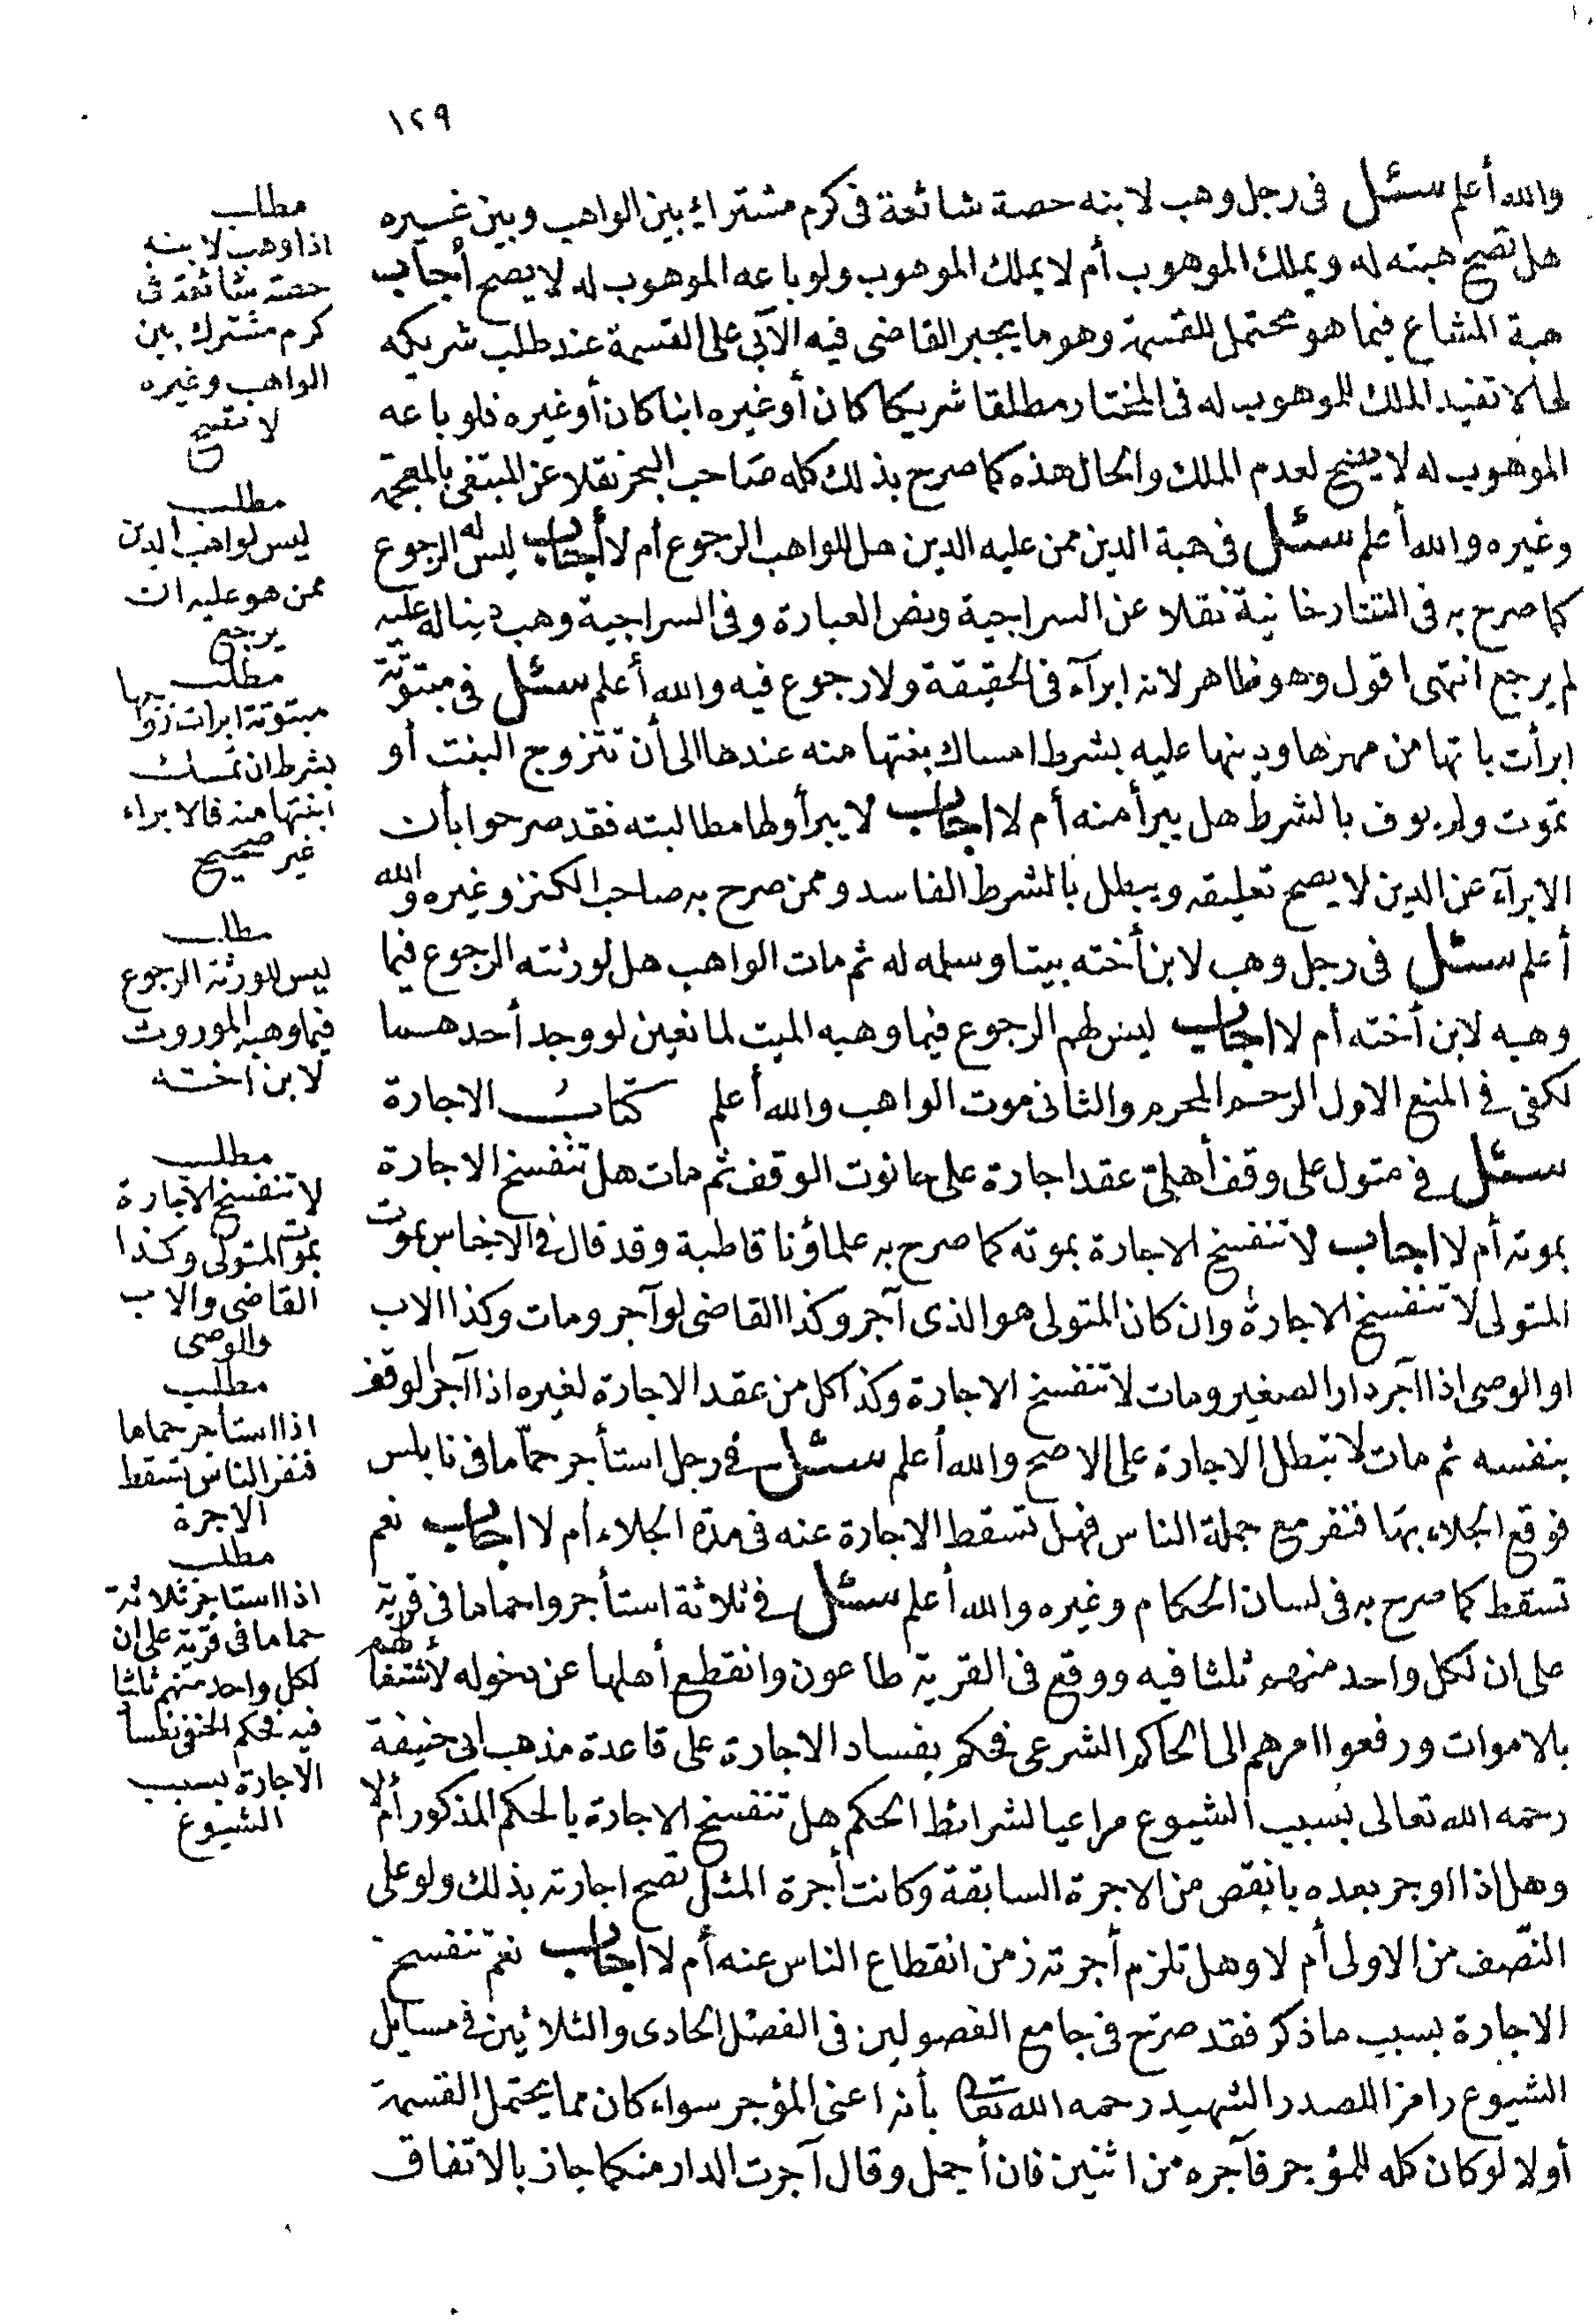 ١٢٩
والله أعلم سئل فى رجل وهب لابنه حصة شائعة فى كرم مشترك بين الواهب وبين غيره
هل تصح هبته له ويملك الموهوب أم لا يملك الموهوب ولو باعه الموهوب له لا يصح أجاب
هبة المشاع فيما هو محتمل للقسمة وهو ما يجبر القاضى فيه الآبى على القسمة عند طلب شريكه
لها لا تفيد الملك للموهوب له فى المختار مطلقا شريكا كان أو غيره ابنا كان أو غيره فلو باعه
الموهوب له لا يصح لعدم الملك والحال هذه كما صرح بذلك كله صاحب البحر نقلا عن المبتغى بالمعجمة
وغيره والله أعلم سئل فى هبة الدين ممن عليه الدين هل للواهب الرجوع أم لا أجاب ليس له الرجوع
كما صرح به فى التتارخانية نقلا عن السراجية ونص العبارة وفى السراجية وهب دينا له عليه
لم يرجع انتهى اقول وهو ظاهر لانه ابرآء فى الحقيقة ولا رجوع فيه والله أعلم سئل فى مبتوتة
ابرأت باتها من مهرها ودينها عليه بشرط امساك بنتها منه عندها الى أن تتزوج البنت أو
تموت ولم يوف بالشرط هل يبرأ منه أم لا اجاب لا يبرأ ولها مطالبته فقد صرحوا بأن
الابرآء عن الدين لا يصح تعليقه ويبطل بالشرط الفاسد وممن صرح به صاحب الكنز وغيره والله
أعلم سئل فى رجل وهب لابن أخته بيتا وسلمه له ثم مات الواهب هل لورثته الرجوع فيما
وهبه لابن أخته أم لا اجاب ليس لهم الرجوع فيما وهبه الميت لمانعين لو وجد أحدهما
لكفى فى المنع الاول الرحم المحرم والثانى موت الواهب والله أعلم كتاب الاجارة
سئل فى متول على وقف أهلىّ عقد اجارة على حانوت الوقف ثم مات هل تنفسخ الاجارة
بموته أم لا اجاب لا تنفسخ الاجارة بموته كما صرح به علماؤنا قاطبة وقد قال فى الاجناس بموت
المتولى لا تنفسخ الاجارة وان كان المتولى هو الذى آجر وكذا القاضى لو آجر ومات وكذا الاب
او الوصى اذا آجر دار الصغير ومات لا تنفسخ الاجارة وكذا كل من عقد الاجارة لغيره اذا آجر الوقف
بنفسه ثم مات لا تبطل الاجارة على الاصح والله أعلم سئل فى رجل استأجر حمّاما فى نابلس
فوقع الجلاء بها فنفر مع جملة الناس فهل تسقط الاجارة عنه فى مدة الجلاء أم لا اجاب نعم
تسقط كما صرح به فى لسان الحكام وغيره والله أعلم سئل فى ثلاثة استأجروا حماما فى قرية
على ان لكل واحد منهم ثلثا فيه ووقع فى القرية طاعون وانقطع أهلها عن دخوله لاشتغالهم
بالاموات ورفعوا امرهم الى الحاكم الشرعى فحكم بفساد الاجارة على قاعدة مذهب ابى حنيفة
رحمه الله تعالى بسبب الشيوع مراعيا لشرائط الحكم هل تنفسخ الاجارة بالحكم المذكور أم لا
وهل اذا اوجر بعده بانقص من الاجرة السابقة وكانت أجرة المثل تصح اجارته بذلك ولو على
النّصف من الاولى أم لا وهل تلزم أجرته زمن انقطاع الناس عنه أم لا اجاب نعم تنفسخ
الاجارة بسبب ما ذكر فقد صرّح فى جامع الفصولين فى الفصل الحادى والثلاثين فى مسايل
الشيوع رامزا للصدر الشهيد رحمه الله تعالى بأنه اعنى المؤجر سواء كان مما يحتمل القسمة
أولا لو كان كله للمؤجر فآجره من اثنين فان أجمل وقال آجرت الدار منكما جاز بالاتفاق
مطلب
اذا وهب لابنه
حصة شائعة فى
كرم مشترك بين
الواهب وغيره
لا تصح
مطلب
ليس لواهب الدين
ممن هو عليه ان
يرجع
مطلب
مبتوتة ابرات زوجها
بشرط ان تمسك
ابنتها منه فالابراء
غير صحيح
مطلب
ليس للورثة الرجوع
فيما وهبه الموروث
لابن اخته
مطلب
لا تنفسخ الاجارة
بموت المتولى وكذا
القاضى والاب
والوصى
مطلب
اذا استأجر حماما
فنفر الناس تسقط
الاجرة
مطلب
اذا استاجر ثلاثة
حماما فى قرية على ان
لكل واحد منهم ثلثا
فيه فحكم الحنفى بفساد
الاجارة بسبب
الشيوع